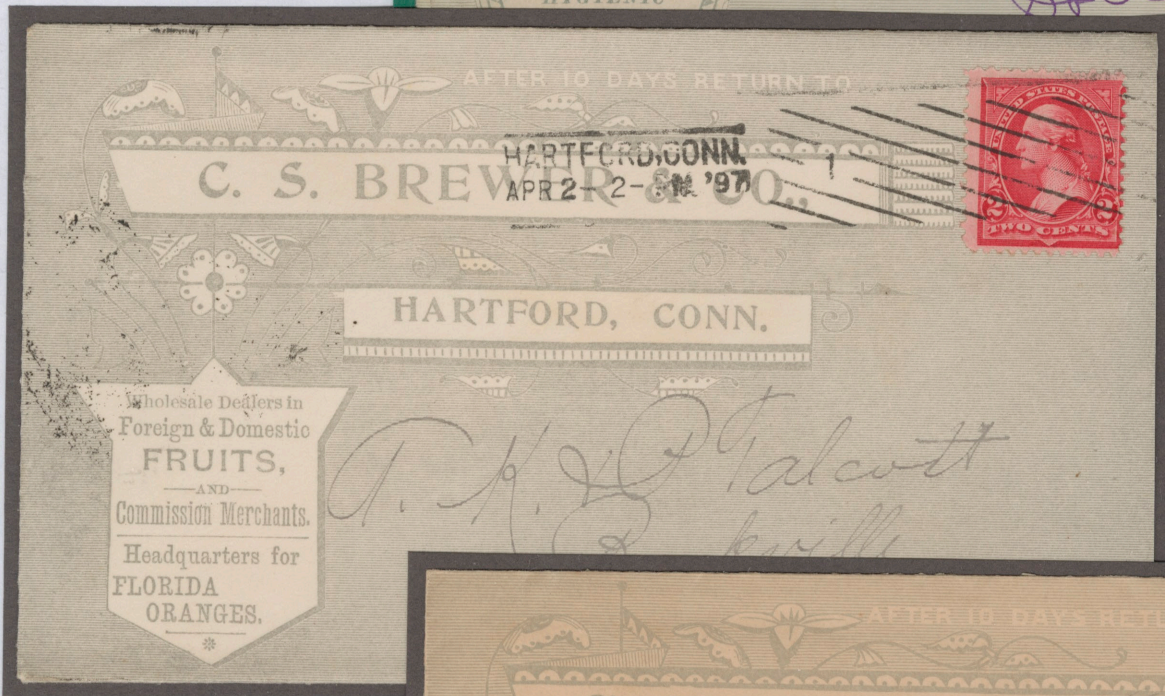 HYGIENIC
AFTER 10 DAYS RETURN TO
C. S. BREWER & CO.,
HARTFORD, CONN.
APR 2-2- '97
1
UNITED STATES POSTAGE
2 2
TWO CENTS
HARTFORD, CONN.
Wholesale Dealers in
Foreign & Domestic
FRUITS,
AND
Commission Merchants.
Headquarters for
FLORIDA
ORANGES.
Talcott
AFTER 10 DAYS RETU